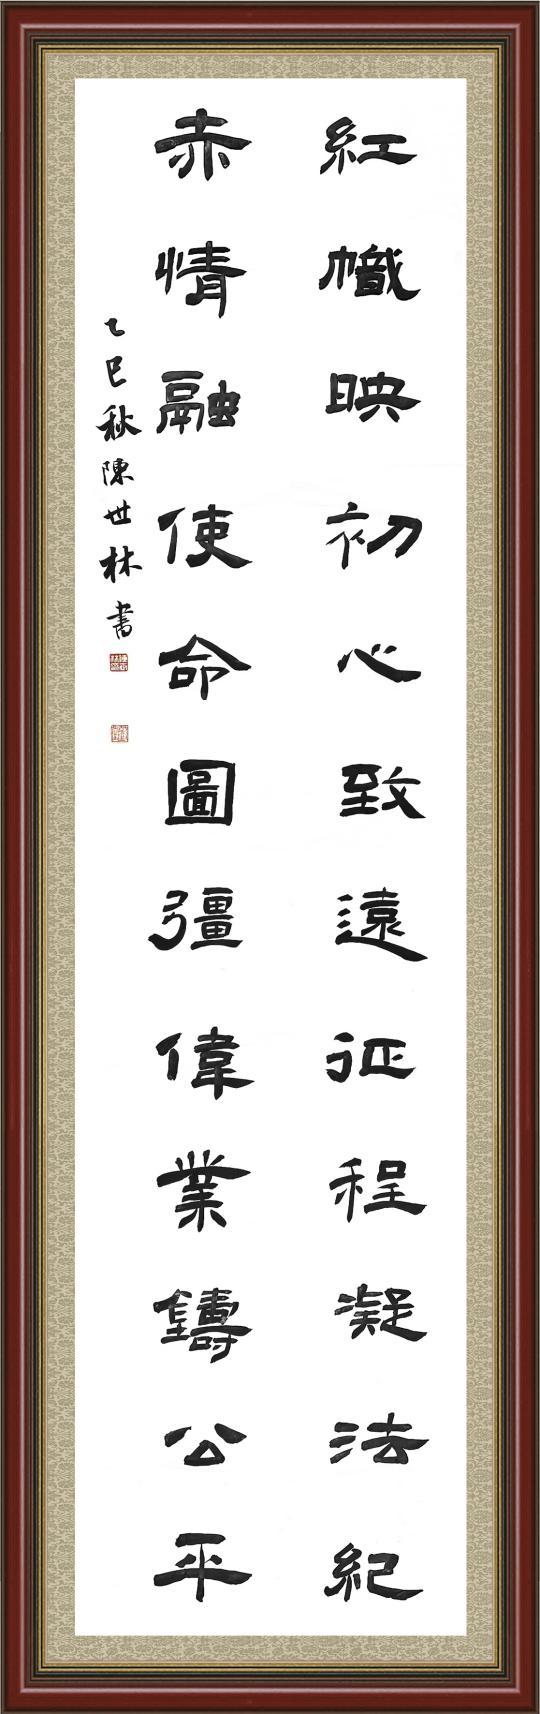 紅幟映初心致遠征程凝法紀
赤情融使命圖彊偉業鑄公平
乙巳秋陳世林書